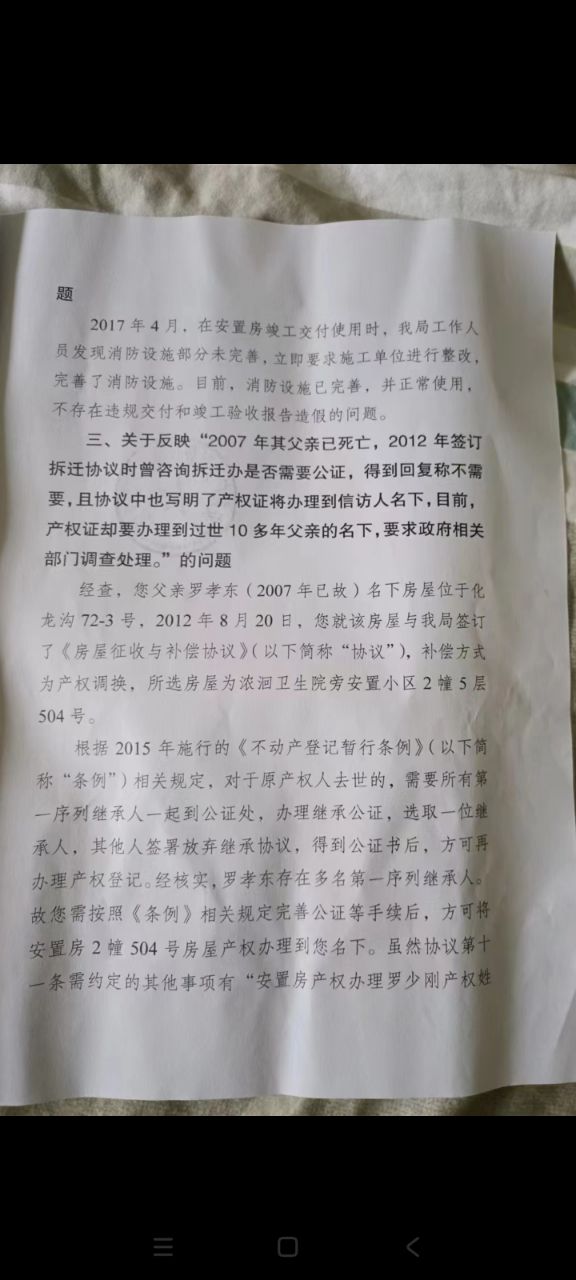 题
2017 年 4 月，在安置房竣工交付使用时，我局工作人
员发现消防设施部分未完善，立即要求施工单位进行整改，
完善了消防设施。目前，消防设施已完善，并正常使用，
不存在违规交付和竣工验收报告造假的问题。
三、关于反映“2007 年其父亲已死亡，2012 年签订
拆迁协议时曾咨询拆迁办是否需要公证，得到回复称不需
要，且协议中也写明了产权证将办理到信访人名下，目前，
产权证却要办理到过世 10 多年父亲的名下，要求政府相关
部门调查处理。”的问题
经查，您父亲罗孝东（2007 年已故）名下房屋位于化
龙沟 72-3 号，2012 年 8 月 20 日，您就该房屋与我局签订
了《房屋征收与补偿协议》（以下简称“协议”），补偿方式
为产权调换，所选房屋为浓洄卫生院旁安置小区 2 幢 5 层
504 号。
根据 2015 年施行的《不动产登记暂行条例》（以下简
称“条例”）相关规定，对于原产权人去世的，需要所有第
一序列继承人一起到公证处，办理继承公证，选取一位继
承人，其他人签署放弃继承协议，得到公证书后，方可再
办理产权登记。经核实，罗孝东存在多名第一序列继承人。
故您需按照《条例》相关规定完善公证等手续后，方可将
安置房 2 幢 504 号房屋产权办理到您名下。虽然协议第十
一条需约定的其他事项有“安置房产权办理罗少刚产权姓